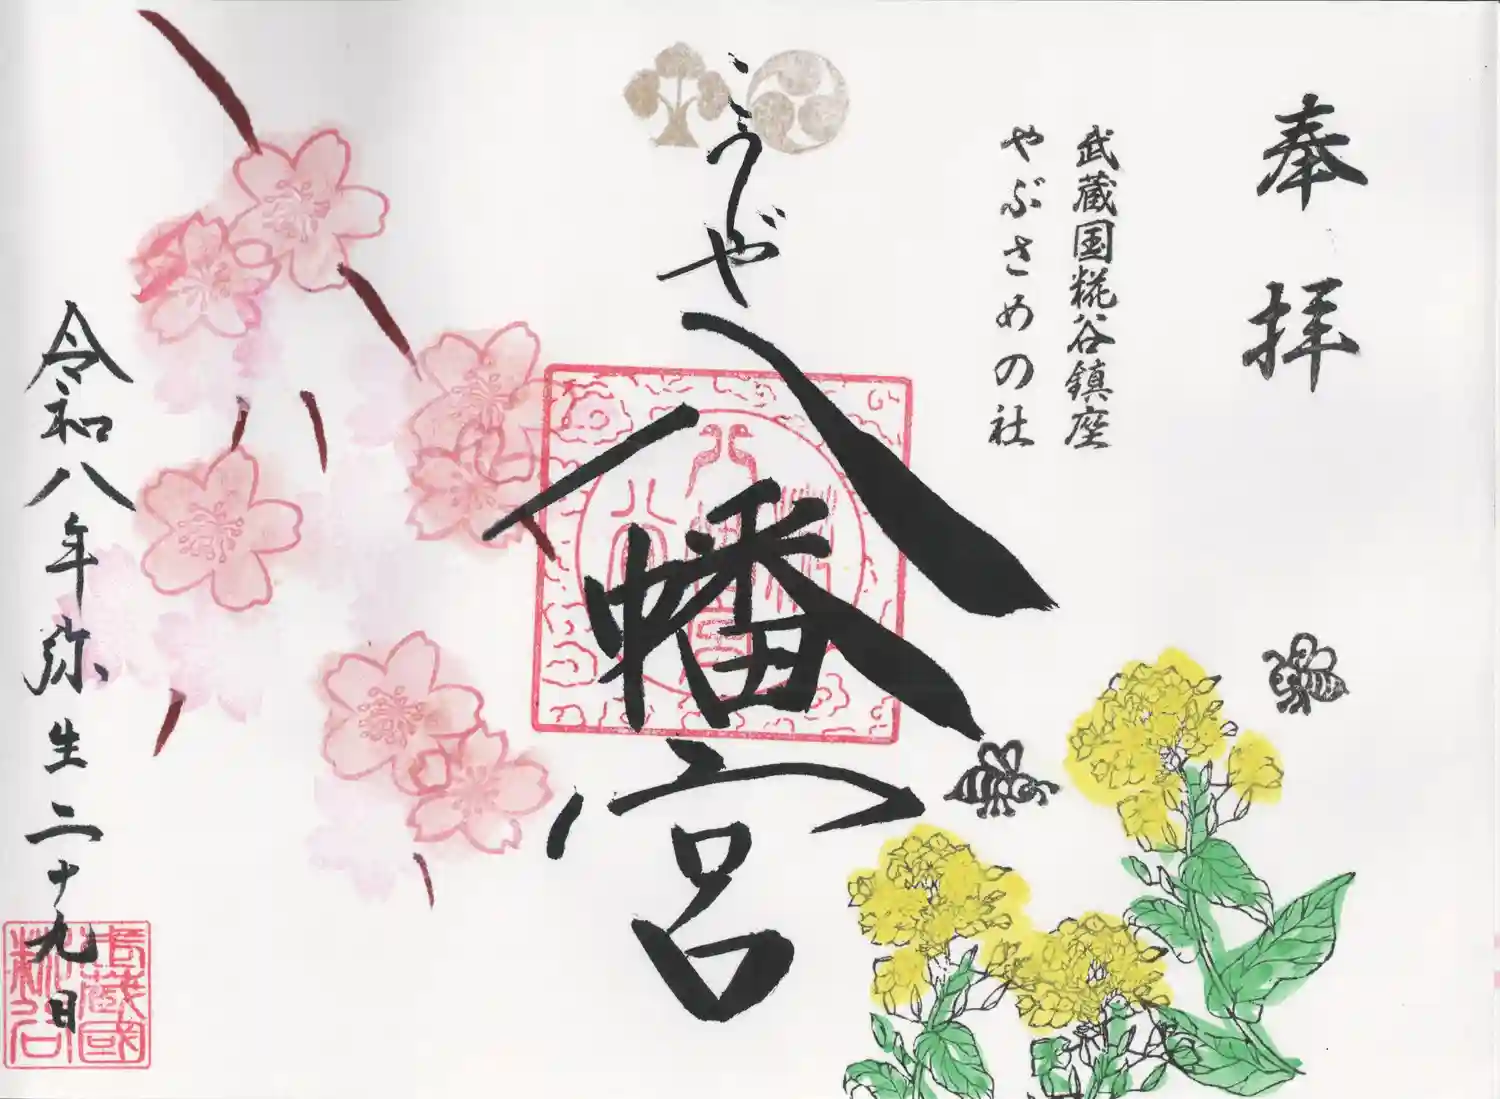 奉拝
武蔵国糀谷鎮座
やぶさめの社
こうじや
八幡宮
令和八年弥生二十九日
武蔵國
糀谷